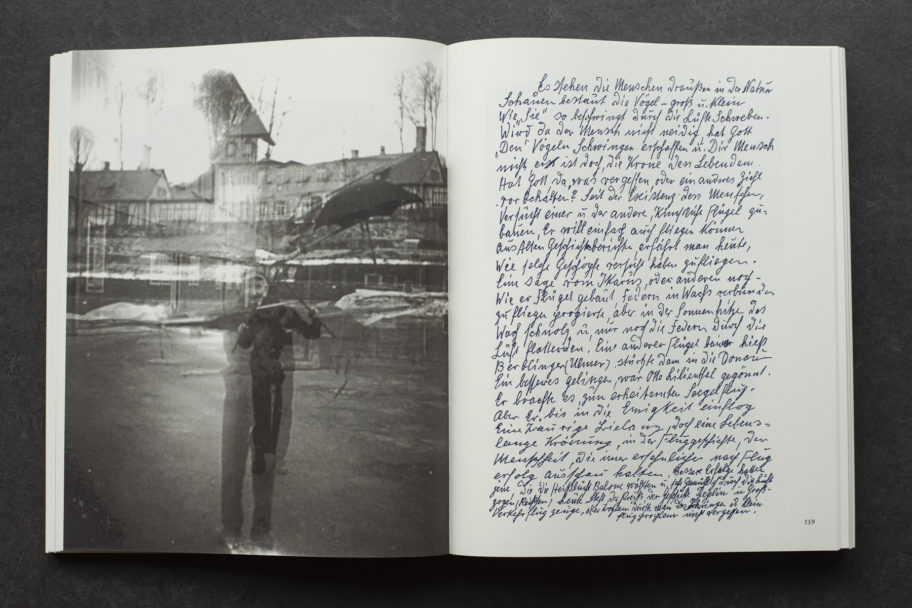 Es stehen die Menschen draußen in der Natur
Schauen bestaunt die Vögel – groß u. klein
Wie „Sie“ so beschwingt durch die Lüfte Schweben.
Wird da der Mensch nicht neidig, hat Gott
„Den“ Vögeln Schwingen erschaffen u. Dir Mensch
nicht, erst ist doch die Krone des Lebenden.
Hat Gott da, was vergessen oder ein anderes Ziehl
vorbehalten? Seit der Existenz des Menschen,
Versucht einer u der andere, Künstliche Flügel zu-
bauen, Er will einfach auch fliegen können
Aus Alten Geschichtsberichten erfährt man heute,
Wie solche Geschöpfe versucht haben zu fliegen.
Eine Sage vom Ikarus, oder anderen noch –
Wie er Flügel gebaut, Federn in Wachs verbunden
zu fliegen probierte, aber in der Sonnenhitze das
Wachs schmolz u. nur noch die Federn durch die
Luft flatterden. Ein anderer Flügel bauer hieß
Berblinger (Ulmer) stürtzte dann in die Donau
Ein besseres gelingen, war Otto Lilienthal gegönnt.
Er brachte es zum Segelflug –
Aber Er bis in die Ewigkeit einflog
Eine Traurige doch eine Lebens-
lange Kröhnung, in der Fluggeschichte, der
Menschheit, die immer nach Flug
erfolg ausschau halten. bessere Erfolge hatten
jene, die die Heißluft Balone u. sich durch die Lüfte
zogen, heute der Zeplin u. Groß-
Verkehrsflugzeuge, u klein
nicht vergessen.
159